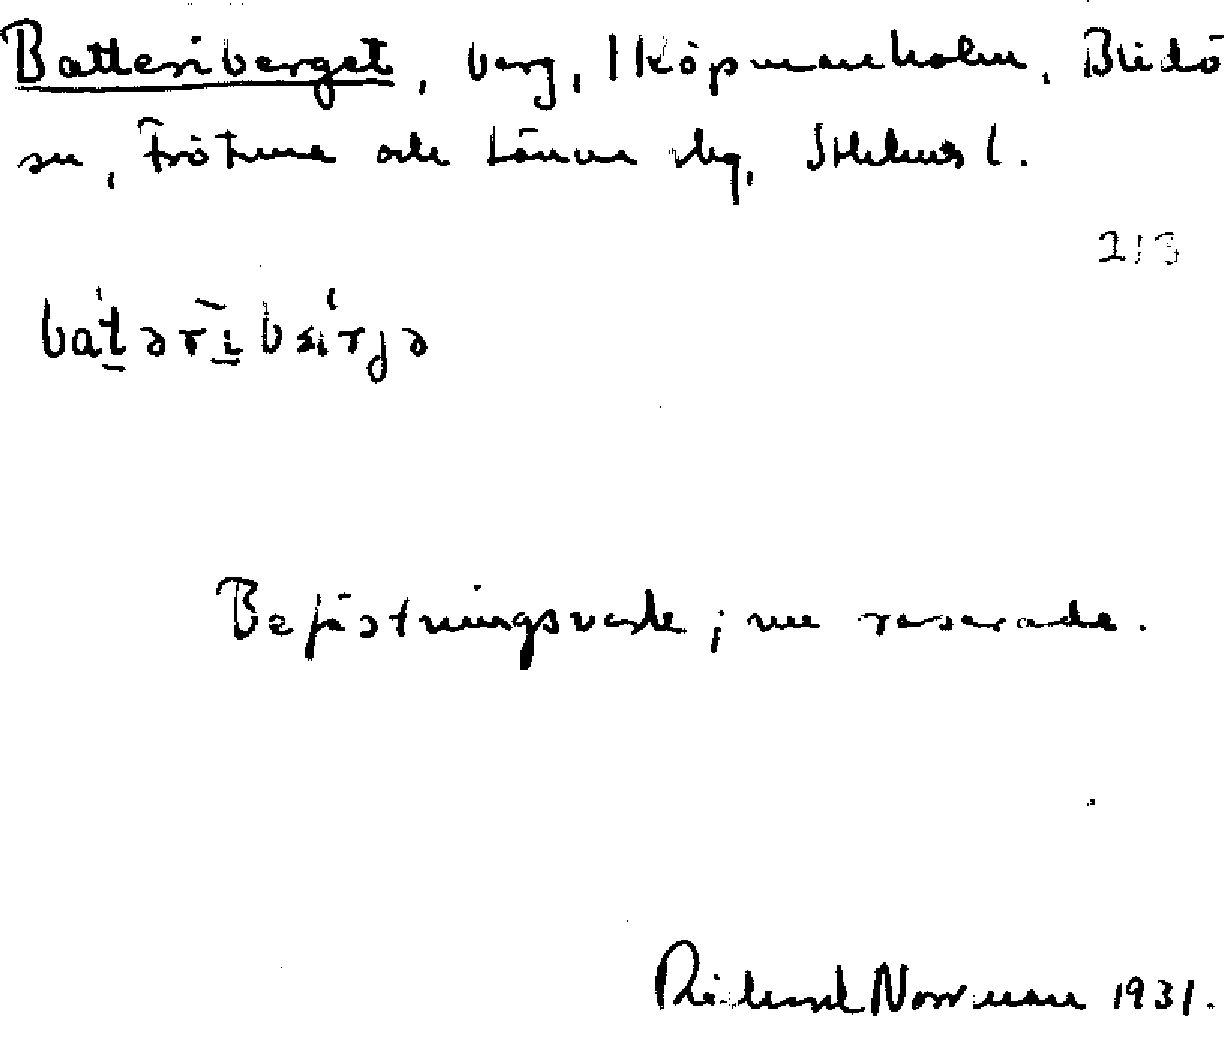 Batteriberget, berg, 1 Köpmanholm, Blidö
sn, Frötuna och Länna skg, Sthlms l.
213
Befästningsverk; nu raserade.
Rickard Norrman 1931.